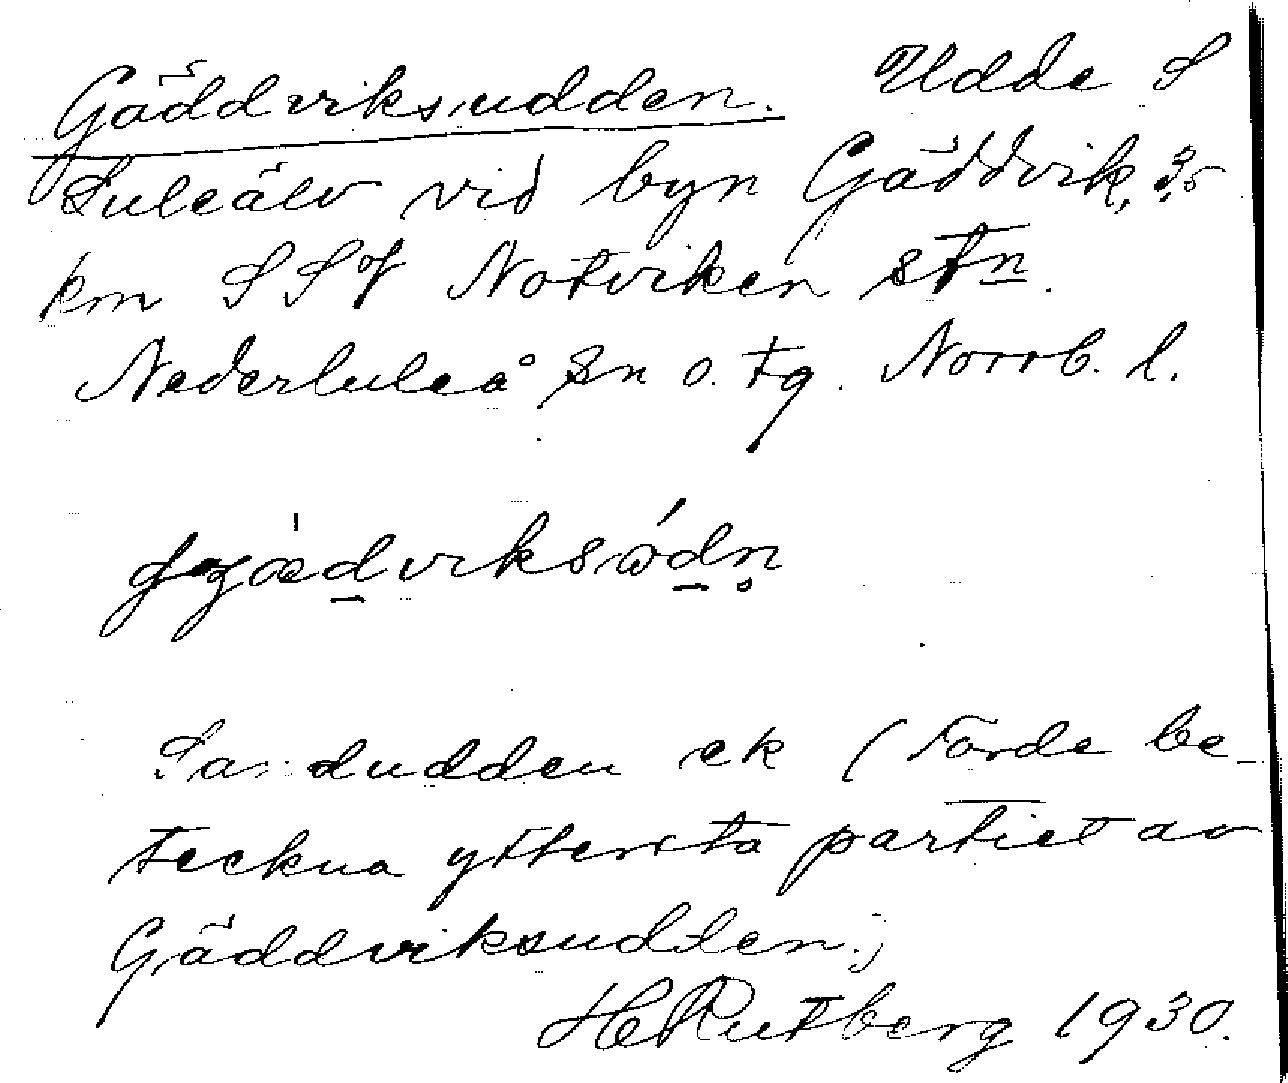 Gäddviksudden. Udde S
Luleälv vid byn Gäddvik, 3,5
km SSV Notviken stn.
Nederluleå sn o. tg. Norrb. l.
Sandudden ek (Torde be-
teckna yttersta partiet av
Gäddviksudden.)
HRutberg 1930.